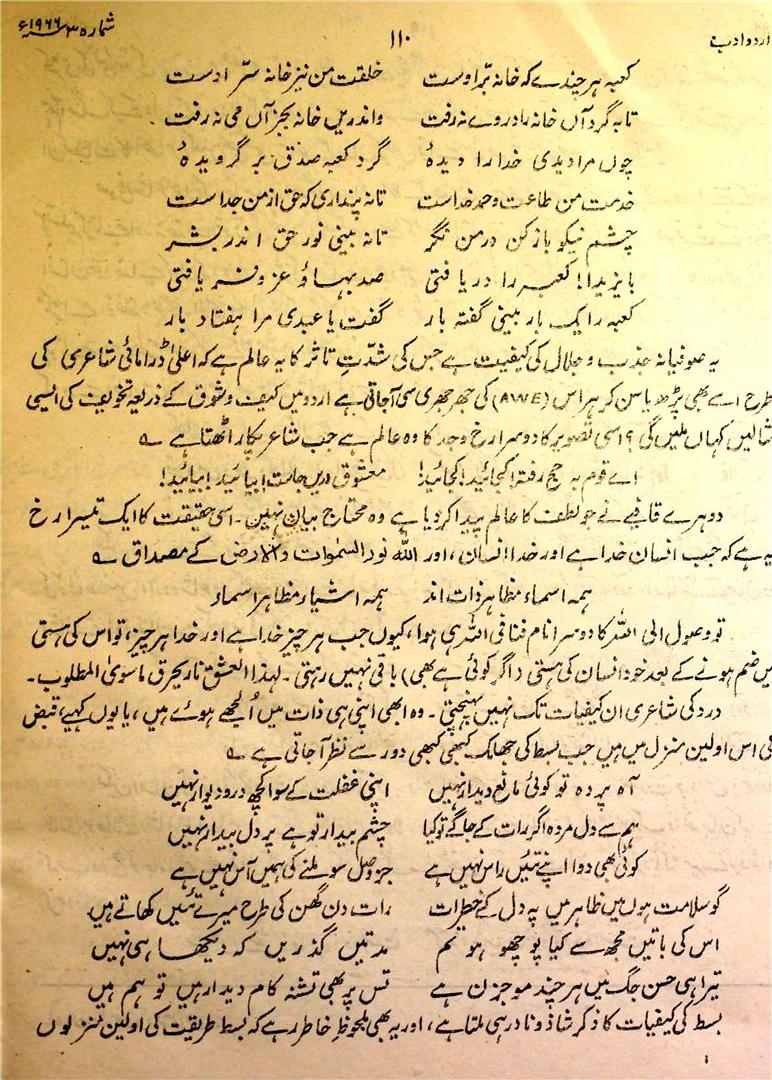 اردو ادب ۱۱۰ شمارہ ۳ سنہ ۱۹۶۶ء
کعبہ ہر چندے کہ خانہ بّر اوست خلقت من نیز خانہ سرّ اوست
تا بہ گرد آں خانہ را در وے نہ رفت واندریں خانہ بجز آں حی نہ رفت
چوں مرا دیدی خدا را دیدۂ گرد کعبہ صدق بر گرویدۂ
خدمت من طاعت و حمد خداست تا نہ پنداری کہ حق از من جداست
چشم نیکو باز کن در من نگر تا نہ بینی نور حق اندر بشر
بایزیدا! کعبہ را دریافتی صد بہاؤ عز و فر یافتی
کعبہ را یک بار بیتی گفتہ یار گفت یا عبدی مرا ہفتاد بار
یہ صوفیانہ جذب و جلال کی کیفیت ہے جس کی شدّتِ تاثر کا یہ عالم ہے کہ اعلیٰ ڈرامائی شاعری کی
طرح اسے بھی پڑھ یا سن کر ہراس (AWE) کی جھرجھری سی آجاتی ہے اردو میں کیف و شوق کے ذریعہ تخویف کی ایسی
مثالیں کہاں ملیں گی؟ اسی تصویر کا دوسرا رخ وجد کا وہ عالم ہے جب شاعر پکار اٹھتا ہے ؎
اے قوم بہ حج رفتہ! کجائید! کجائید! معشوق دریں جاست! بیائید! بیائید!
دوہرے قافیے نے جو لطف کا عالم پیدا کر دیا ہے وہ محتاج بیان نہیں۔ اسی حقیقت کا ایک تیسرا رخ
یہ ہے کہ جب انسان خدا ہے اور خدا انسان، اور اللہ نور السمٰوات والارض کے مصداق ؎
ہمہ اسماء مظاہر ذات اند ہمہ اشیاء مظاہر اسماء
تو وصول الی اللہ کا دوسرا نام فنا فی اللہ ہی ہوا، کیوں جب ہر چیز خدا ہے اور خدا ہر چیز، تو اس کی ہستی
میں ضم ہونے کے بعد خود انسان کی ہستی (اگر کوئی ہے بھی) باقی نہیں رہتی۔ لہٰذا العشق نار یحرق ماسویٰ المطلوب۔
درد کی شاعری ان کیفیات تک نہیں پہنچتی۔ وہ ابھی اپنی ہی ذات میں اُلجھے ہوئے ہیں، یا یوں کہیے، قبض
کی اس اولین منزل میں ہیں جب بسط کی جھلک کبھی کبھی دور سے نظر آجاتی ہے ؎
آہ پردہ تو کوئی مانع دیدار نہیں اپنی غفلت کے سوا کچھ در و دیوار نہیں
ہم سے دل مردہ اگر رات کے جاگے تو کیا چشم بیدار تو ہے پر دل بیدار نہیں
کوئی بھی دوا اپنے تئیں راس نہیں ہے جز وصل سو ملنے کی ہمیں آس نہیں ہے
گو سلامت ہوں میں ظاہر میں پہ دل کے خطرات رات دن گھن کی طرح میرے تئیں کھاتے ہیں
اس کی باتیں مجھ سے کیا پوچھو ہو تم مدتیں گذریں کہ دیکھا ہی نہیں
تیرا ہی حسن جگ میں ہر چند موجزن ہے تس پر بھی تشنہ کام دیدار ہیں تو ہم ہیں
بسط کی کیفیات کا ذکر شاذ و نادر ہی ملتا ہے، اور یہ بھی ملحوظِ خاطر رہے کہ بسط طریقت کی اولین منزلوں